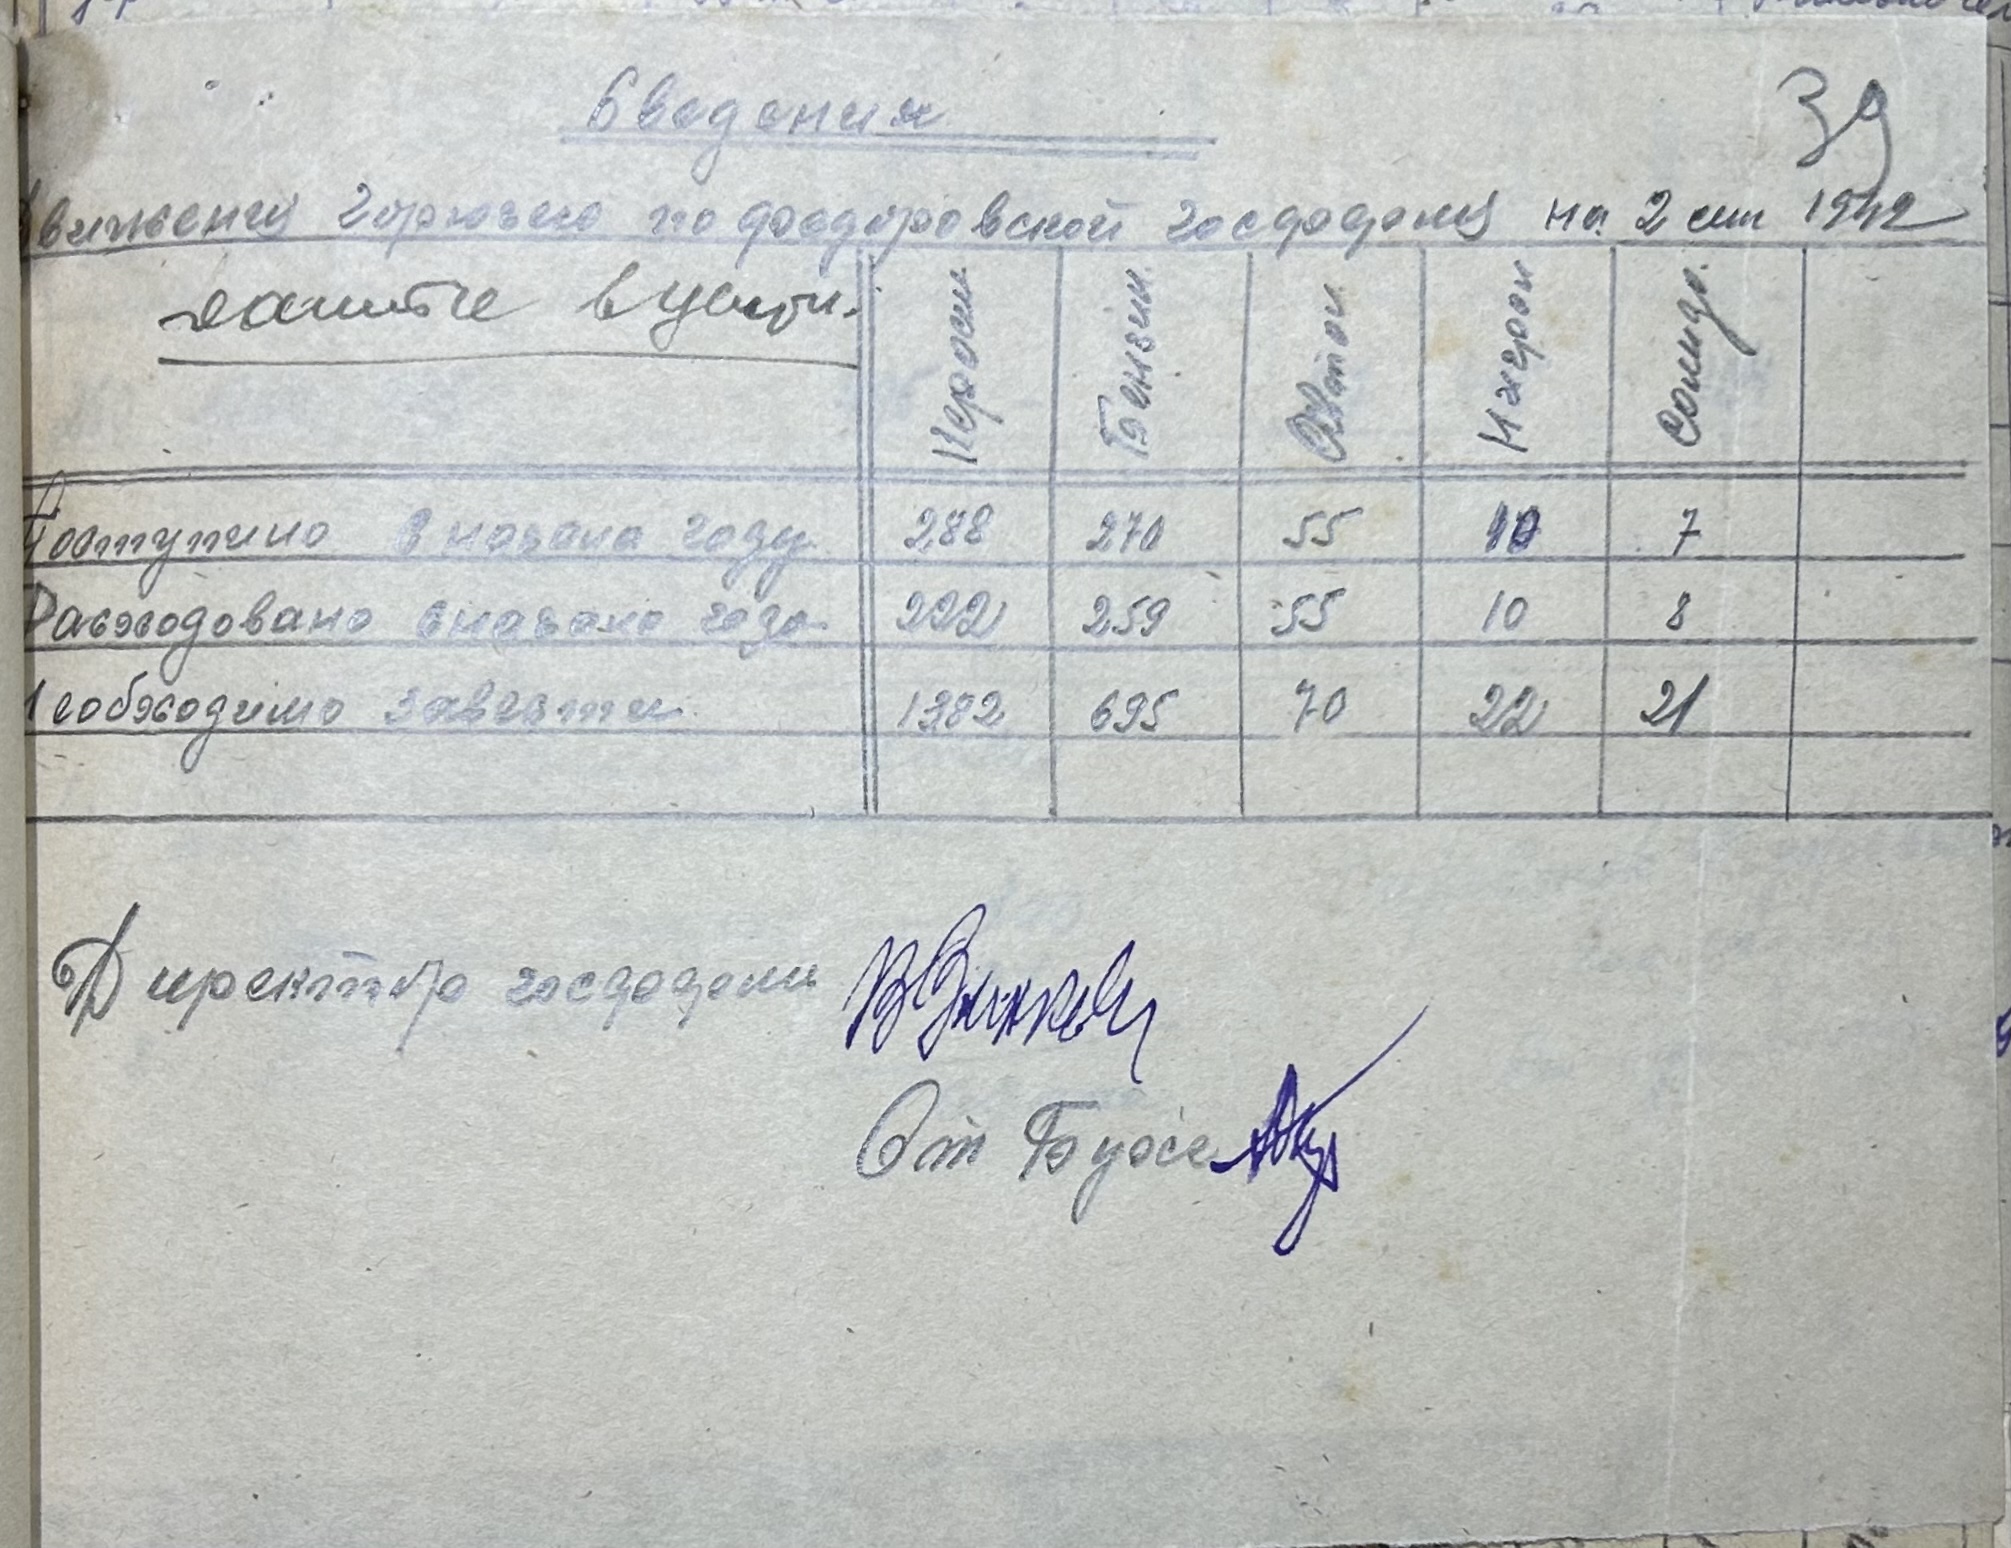 39
Сведения
движения горючего по федоровской госфодоми на 2 сен 1942
данные в центн.
Керосин Бензин Автол Нигрол солидо.
Поступило с начала году 288 270 55 10 7
Расходовано с начала года 222 259 55 10 8
Необходимо завезти 1382 695 70 22 21
Директор
От